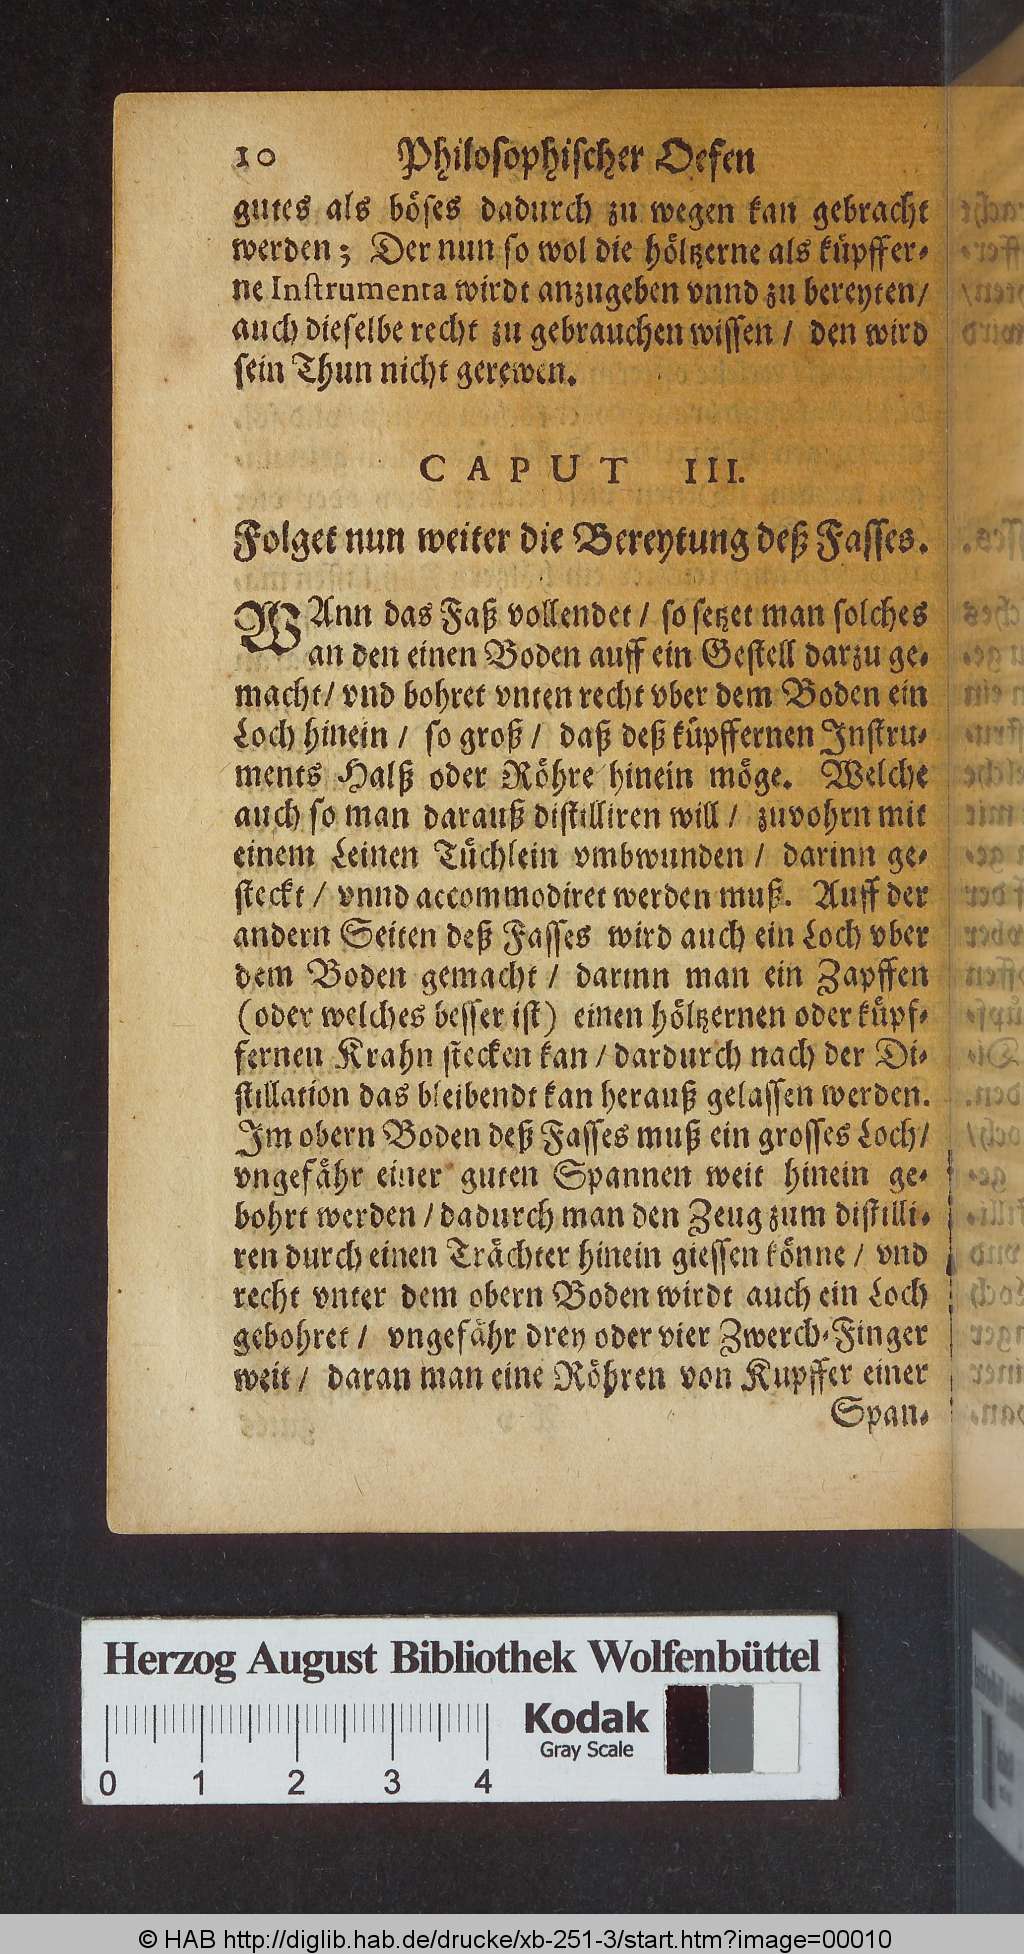 10 Philosophischer Oefen
gutes als böses dadurch zu wegen kan gebracht
werden; Der nun so wol die höltzerne als küpffer-
ne Instrumenta wirdt anzugeben vnnd zu bereyten/
auch dieselbe recht zu gebrauchen wissen / den wird
sein Thun nicht gerewen.
CAPUT III.
Folget nun weiter die Bereytung deß Fasses.
WAnn das Faß vollendet / so setzet man solches
an den einen Boden auff ein Gestell darzu ge-
macht/ vnd bohret vnten recht vber dem Boden ein
Loch hinein / so groß / daß deß küpffernen Instru-
ments Halß oder Röhre hinein möge. Welche
auch so man darauß distilliren will / zuvohrn mit
einem Leinen Tüchlein vmbwunden / darinn ge-
steckt / vnnd accommodiret werden muß. Auff der
andern Seiten deß Fasses wird auch ein Loch vber
dem Boden gemacht / darinn man ein Zapffen
(oder welches besser ist) einen höltzernen oder küpf-
fernen Krahn stecken kan / dardurch nach der Di-
stillation das bleibendt kan herauß gelassen werden.
Im obern Boden deß Fasses muß ein grosses Loch/
vngefähr einer guten Spannen weit hinein ge-
bohrt werden / dadurch man den Zeug zum distilli-
ren durch einen Trächter hinein giessen könne / vnd
recht vnter dem obern Boden wirdt auch ein Loch
gebohret / vngefähr drey oder vier Zwerch-Finger
weit / daran man eine Röhren von Kupffer einer
Span-
Herzog August Bibliothek Wolfenbüttel
Kodak
Gray Scale
0 1 2 3 4
© HAB http://diglib.hab.de/drucke/xb-251-3/start.htm?image=00010